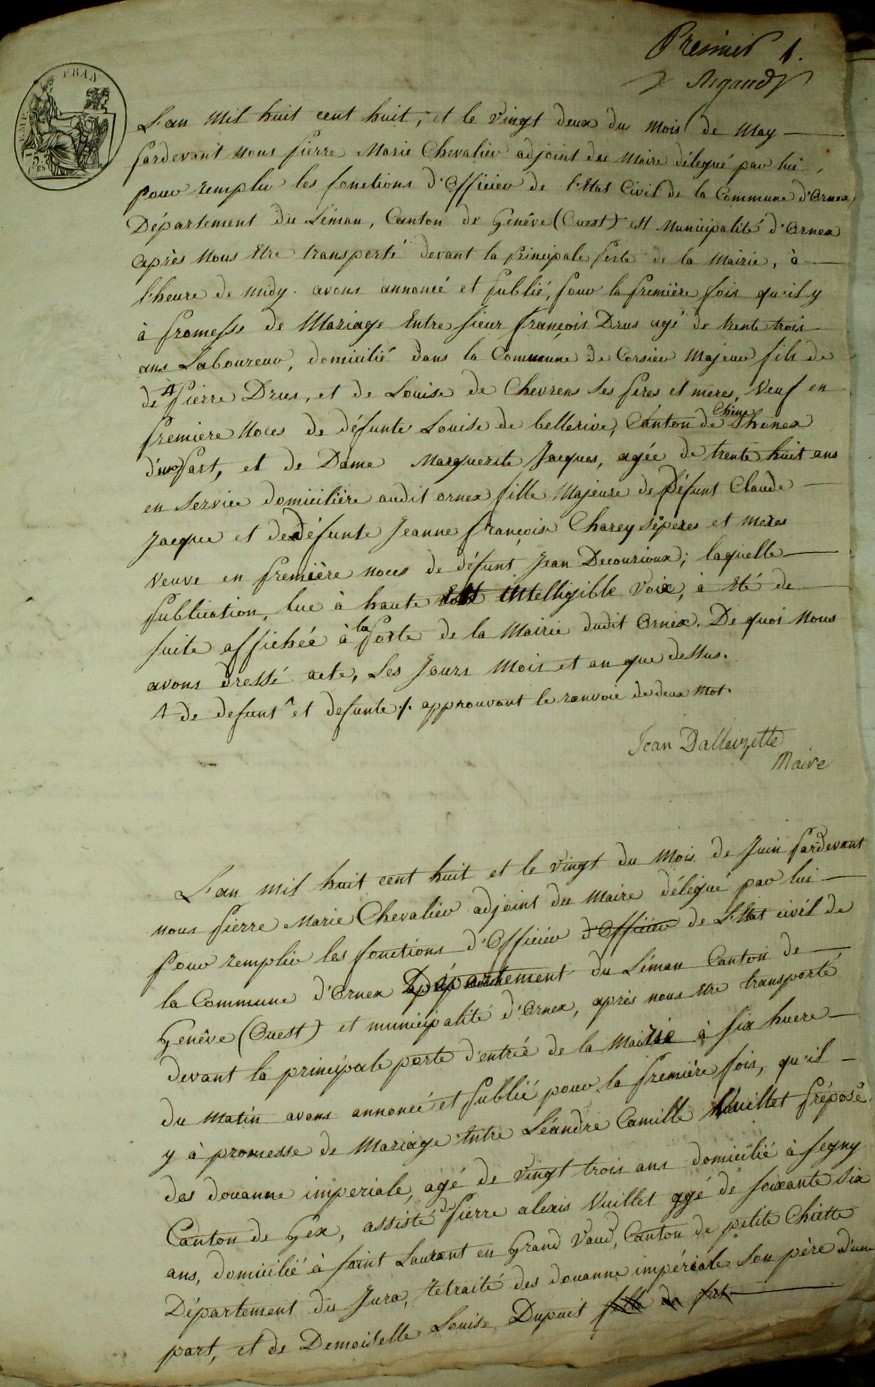 Premier 1.
L'an Mil huit cent huit, et le vingt deux du Mois de May
pardevant nous pierre Marie Chevalier adjoint du Maire délegué par lui
pour remplir les fonctions d'Officier de l'Etat Civil de la Commune d'Ornex
Département du Léman, Canton de Genêve (Ouest) et Municipalité d'Ornex
après Nous Etre transporté devant la principale porte de la Mairie, à
l'heure de midy avons annoncé et publié, pour la première fois qu'il y
à promesse de Mariage Entre sieur françois Drus agé de trente trois
ans Laboureur, domicilié dans la Commune de Corsier Majeur fils de
de pierre Drus, et de Louise de Chevrens ses peres et meres, Veuf en
premiere Noces de défunte Louise de bellerive, Canton de
d'une part, et de Dame Marguerite Jacques, agée de trente huit ans
en service domicilière audit ornex fille Majeure de Défunt Claude
Jacque et de défunte Jeanne françoise Charey Ses peres et meres
Veuve en première noces de défunt Jean Decourioux; laquelle
publication, lue à haute et intelligible voix, à Eté de
suite affichée à la porte de la Mairie dudit Ornex. De quoi Nous
avons dressé acte, Les Jours Mois et an que dessus.
de defunt et defunte approuvant le ranvoie de deux Mot.
Jean
Maire
L'an Mil huit cent huit et le vingt du Mois de Juin pardevant
nous pierre Marie Chevalier adjoint du Maire délegué par lui
pour remplir les fonctions d'Officier d'Officier de L'Etat civil de
la Commune d'Ornex Département du Léman Canton de
Genêve (Ouest) et municipalité d'Ornex, après nous etre transporté
devant la principale porte d'entrée de la Mairie à six huere
du Matin avons annoncé et publié pour la première fois, qu'il
y à promesse de Mariage entre Léandre Camille Vuillet préposé
des douanne imperiale, agé de vingt trois ans domicilié à segny
Canton de Gex, assisté de pierre alexis Vuillet agé de soixante six
ans, domicilié à saint Laurent en Grand Vaud, Canton de petite Chiette
Département du Jura, retraité des douanne impériale Son père d'une
part, et de Demoiselle Louise Dupuit